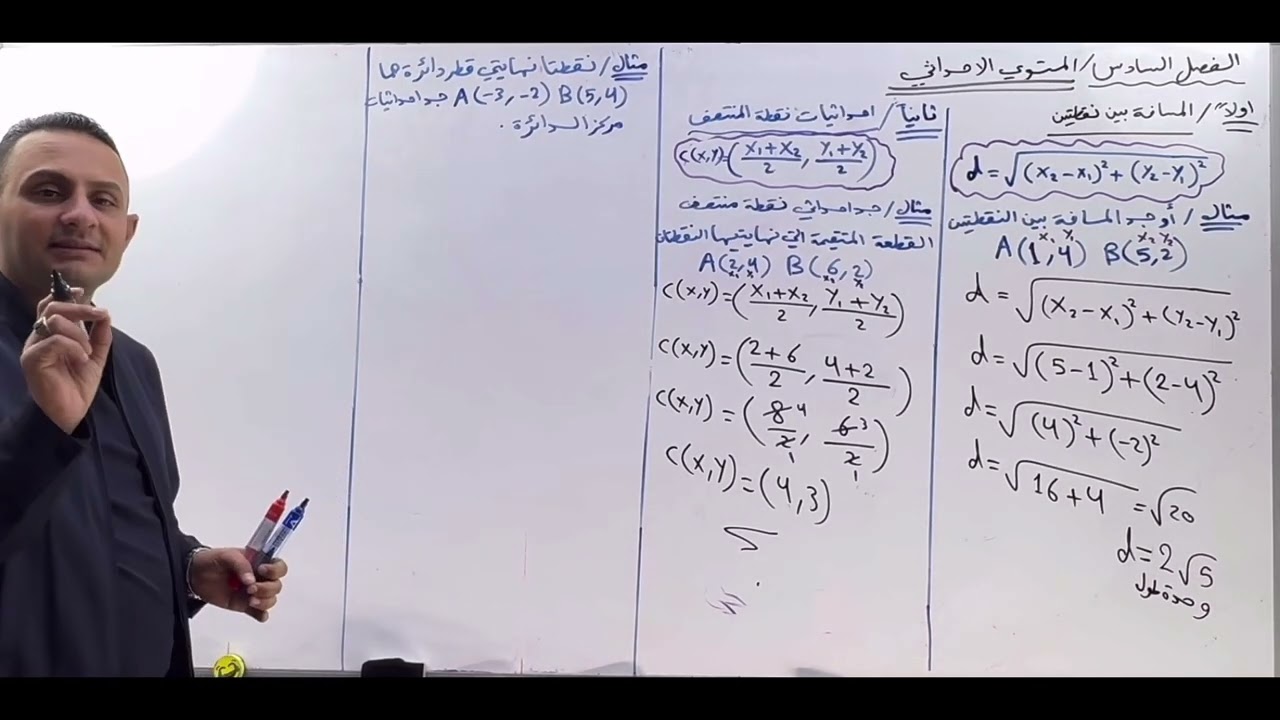 الفصل السادس / المستوي الاحداثي
اولاً / المسافة بين نقطتين
d = √(x₂ − x₁)² + (y₂ − y₁)²
مثال / أوجد المسافة بين النقطتين
x₁ y₁ x₂ y₂
A(1,4) B(5,2)
d = √(x₂ − x₁)² + (y₂ − y₁)²
d = √(5 − 1)² + (2 − 4)²
d = √(4)² + (−2)²
d = √16 + 4 = √20
d = 2√5
وحدة طول
ثانياً / احداثيات نقطة المنتصف
C(x,y) = (x₁ + x₂ / 2 , y₁ + y₂ / 2)
مثال / جد احداثي نقطة منتصف
القطعة المتقيمة التي نهايتيها النقطتان
A(2,4) B(6,2)
C(x,y) = (x₁ + x₂ / 2 , y₁ + y₂ / 2)
C(x,y) = (2 + 6 / 2 , 4 + 2 / 2)
C(x,y) = (8 4 / 2 1 , 6 3 / 2 1)
C(x,y) = (4,3)
مثال / نقطتا نهايتي قطر دائرة هما
A(−3,−2) B(5,4) جد احداثيات
مركز الدائرة .